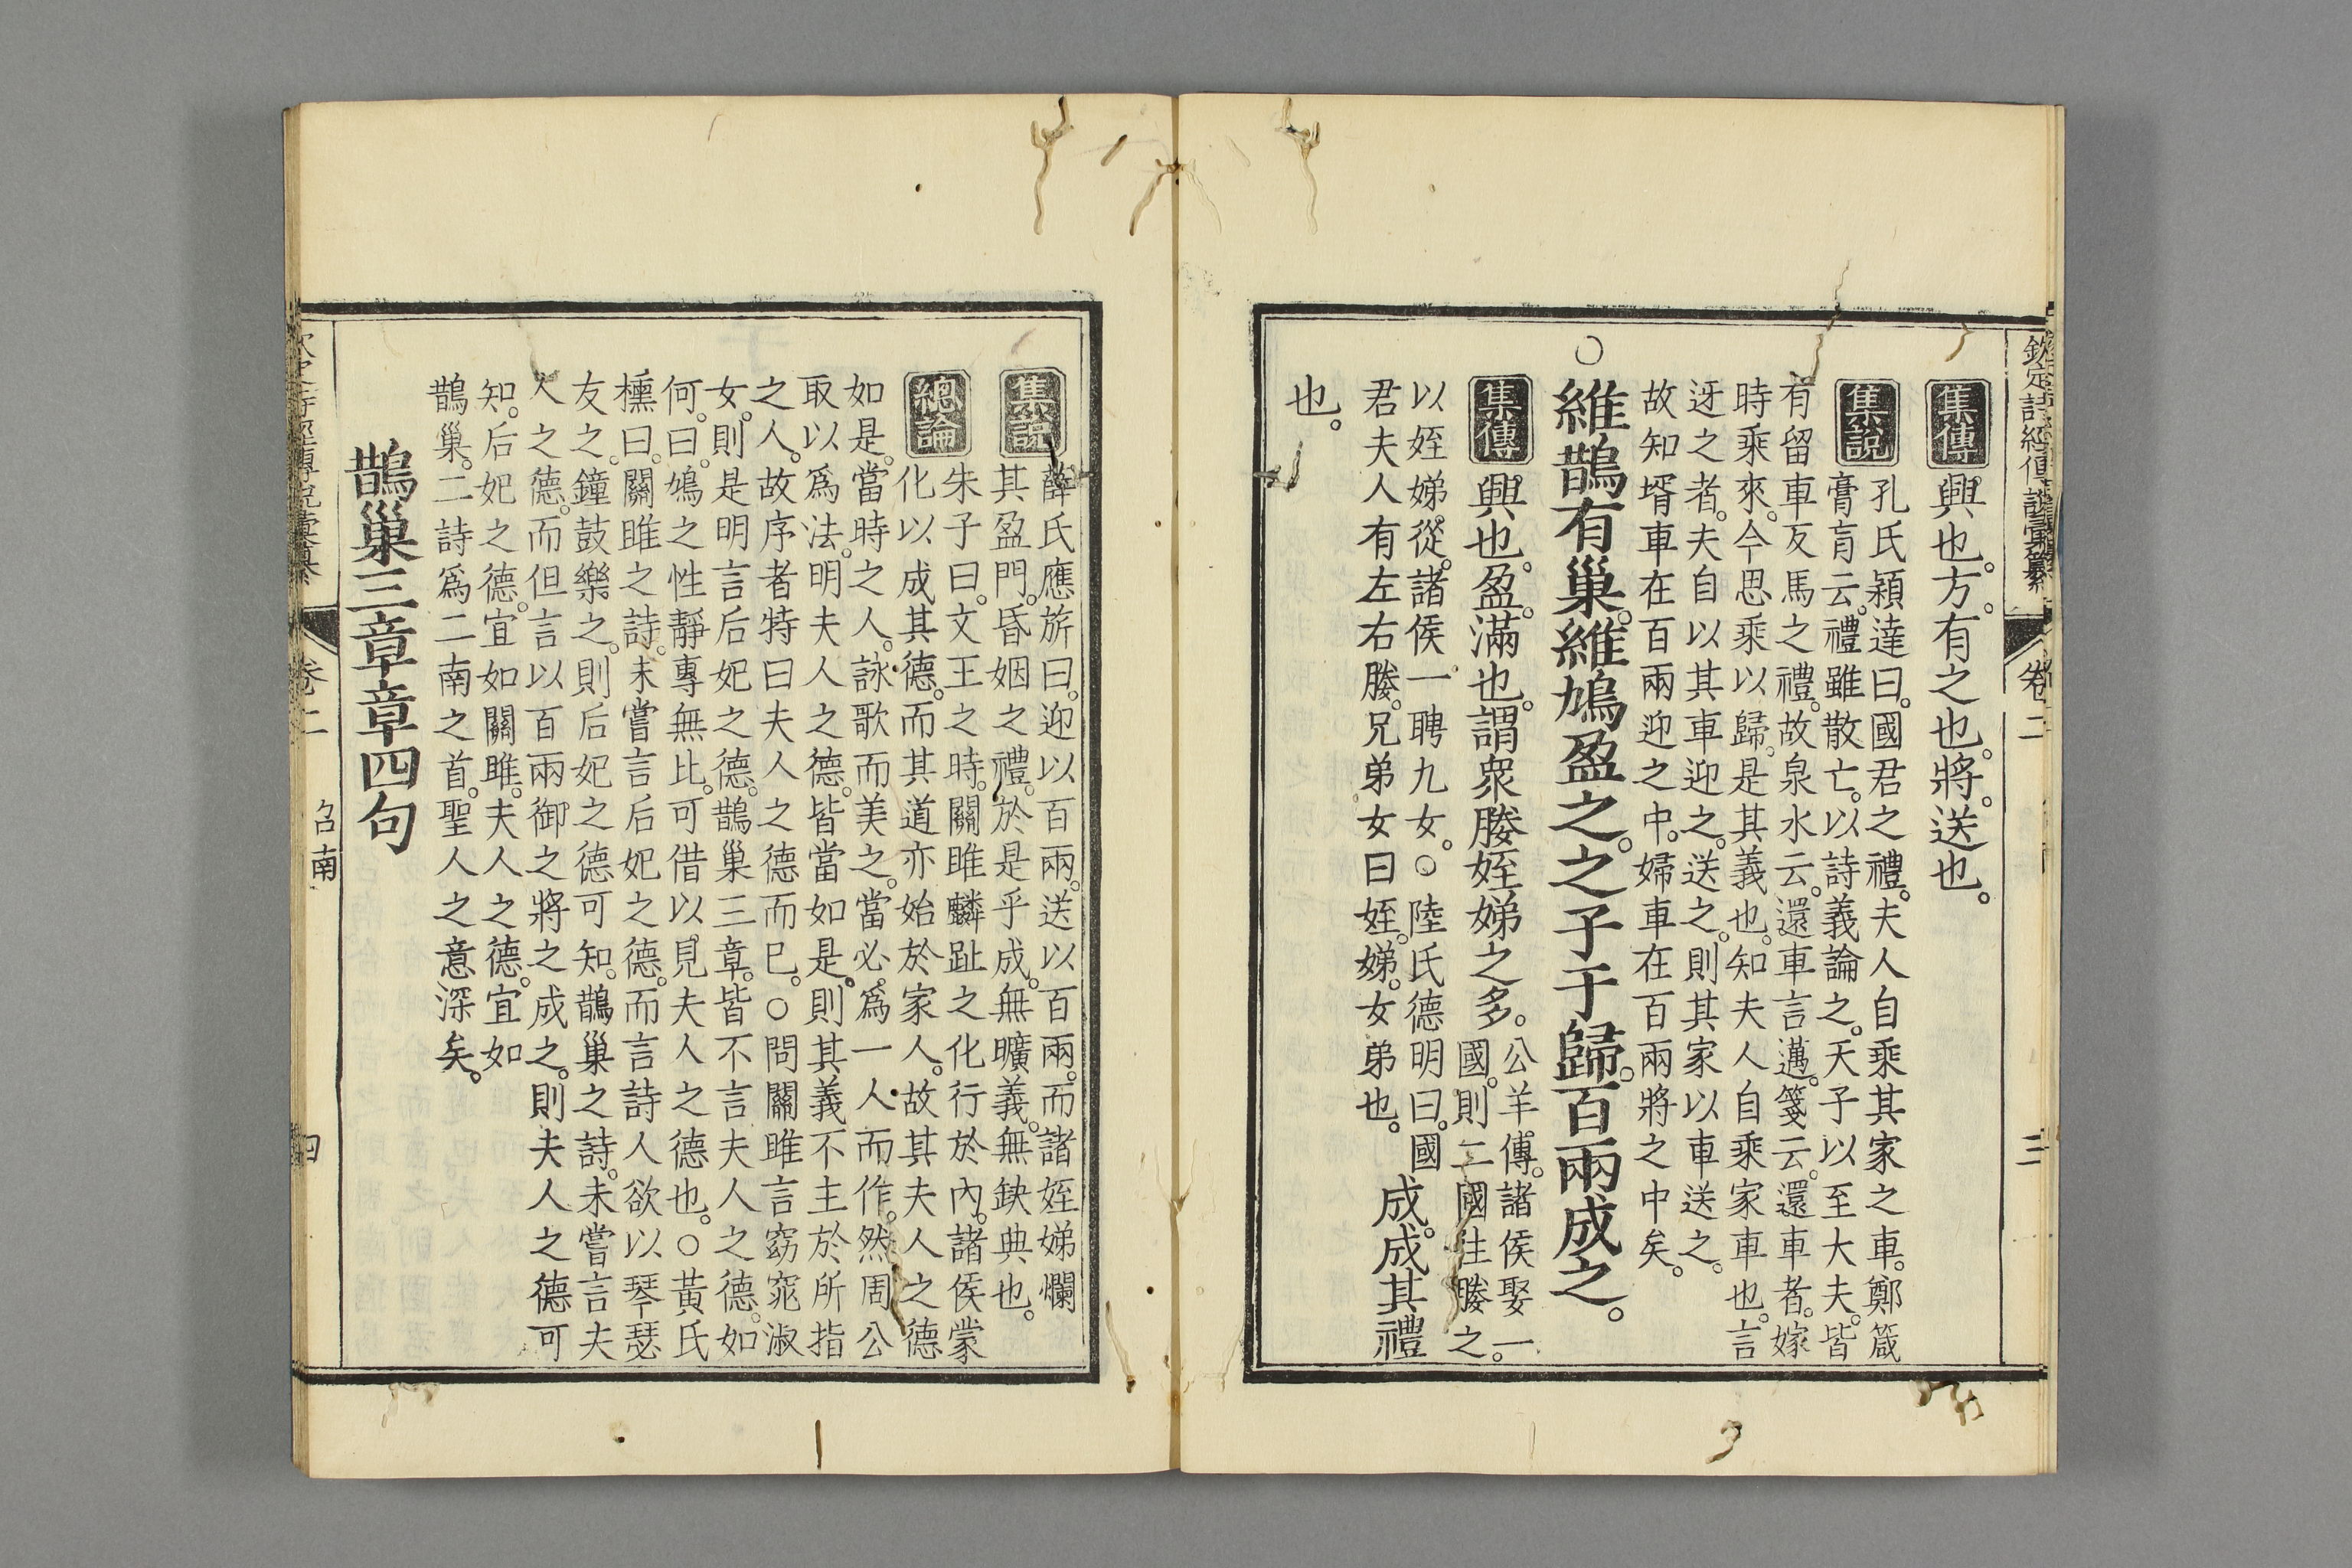 欽定詩經傳說彙纂 卷二 三
集傳 興也。方。有之也。將。送也。
集說 孔氏穎達曰。國君之禮。夫人自乘其家之車。鄭箴
膏肓云。禮雖散亡。以詩義論之。天子以至大夫。皆
有留車反馬之禮。故泉水云。還車言邁。箋云。還車者。嫁
時乘來。今思乘以歸。是其義也。知夫人自乘家車也。言
迓之者。夫自以其車迎之。送之。則其家以車送之。
故知壻車在百兩迎之中。婦車在百兩將之中矣。
○維鵲有巢。維鳩盈之。之子于歸。百兩成之。
集傳 興也。盈。滿也。謂衆媵姪娣之多。公羊傳。諸侯娶一
國。則二國往媵之。
以姪娣從。諸侯一聘九女。○陸氏德明曰。國
君夫人有左右媵。兄弟女曰姪。娣。女弟也。
成。成其禮
也。
集說 薛氏應旂曰。迎以百兩。送以百兩。而諸姪娣爛
其盈門。昏姻之禮。於是乎成。無曠義。無缺典也。
總論 朱子曰。文王之時。關雎麟趾之化行於內。諸侯蒙
化以成其德。而其道亦始於家人。故其夫人之德
如是。當時之人。詠歌而美之。當必爲一人而作。然周公
取以爲法。明夫人之德。皆當如是。則其義不主於所指
之人。故序者特曰夫人之德而已。○問關雎言窈窕淑
女。則是明言后妃之德。鵲巢三章。皆不言夫人之德。如
何。曰。鳩之性靜專無比。可借以見夫人之德也。○黃氏
櫄曰。關雎之詩。未嘗言后妃之德。而言詩人欲以琴瑟
友之。鐘鼓樂之。則后妃之德可知。鵲巢之詩。未嘗言夫
人之德。而但言以百兩御之將之成之。則夫人之德可
知。后妃之德。宜如關雎。夫人之德。宜如
鵲巢。二詩爲二南之首。聖人之意深矣。
鵲巢三章章四句
卷二 召南 四